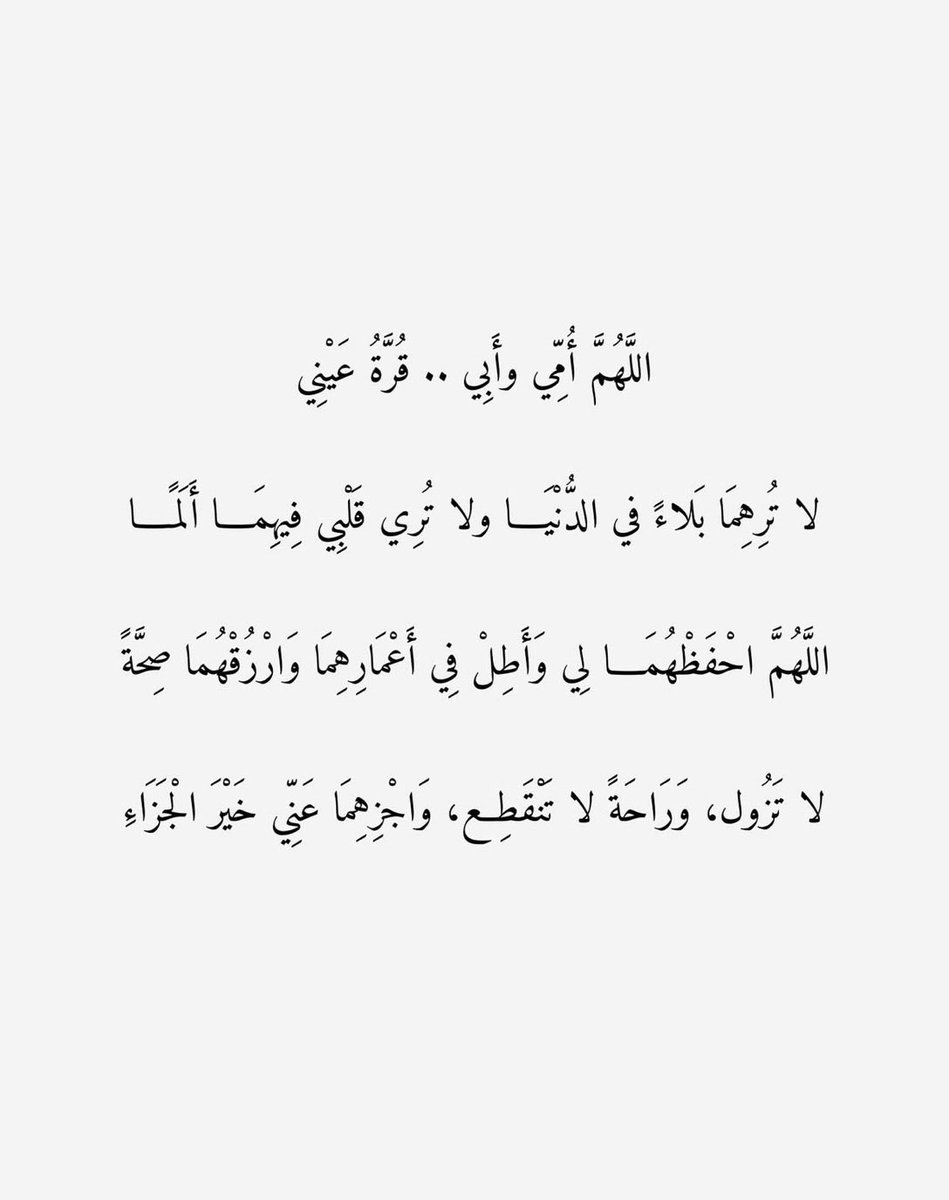 اللَّهُمَّ أُمِّي وأَبِي .. قُرَّةُ عَيْنِي
لا تُرِهِمَا بَلاءً في الدُّنْيَـــا ولا تُرِي قَلْبِي فِيهِمَـــا أَلَمًـــا
اللَّهُمَّ احْفَظْهُمَـــا لِي وَأَطِلْ فِي أَعْمَارِهِمَا وَارْزُقْهُمَا صِحَّةً
لا تَزُول، وَرَاحَةً لا تَنْقَطِـع، وَاجْزِهِمَا عَنِّي خَيْرَ الْجَزَاءِ